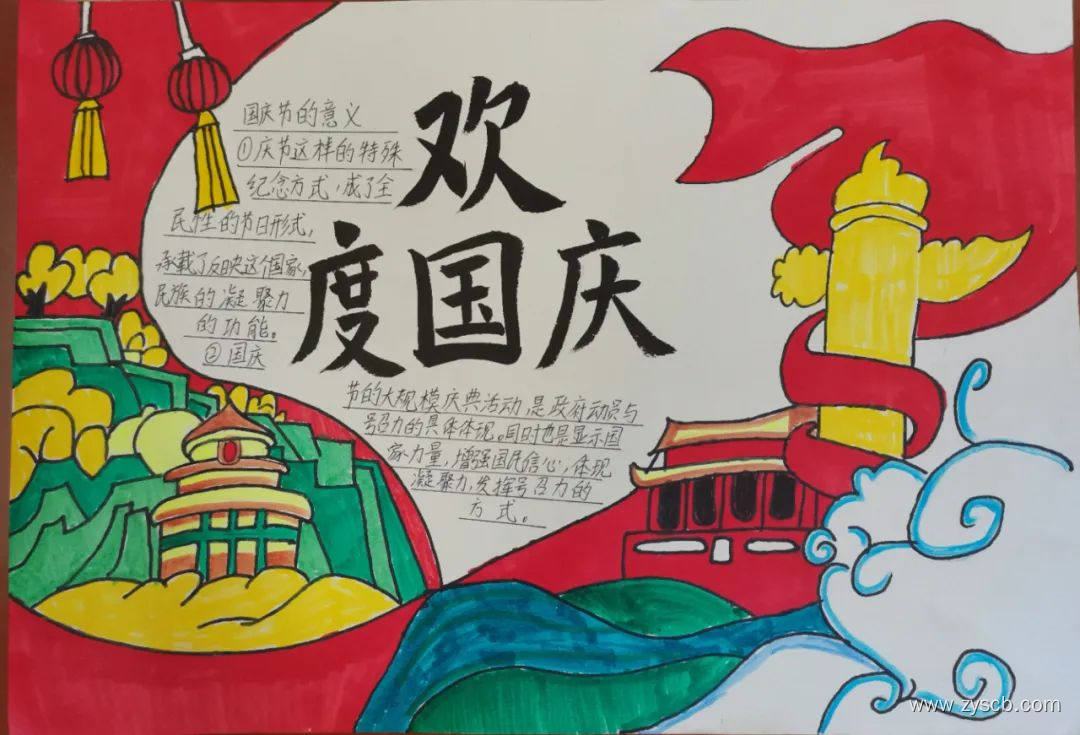 欢
度国庆
国庆节的意义
①庆节这样的特殊
纪念方式,成了全
民性的节日形式,
承载了反映这个国家,
民族的凝聚力
的功能。
②国庆
节的大规模庆典活动,是政府动员与
号召力的具体体现。同时也是显示国
家力量,增强国民信心,体现
凝聚力,发挥号召力的
方式。
www.zyscb.com